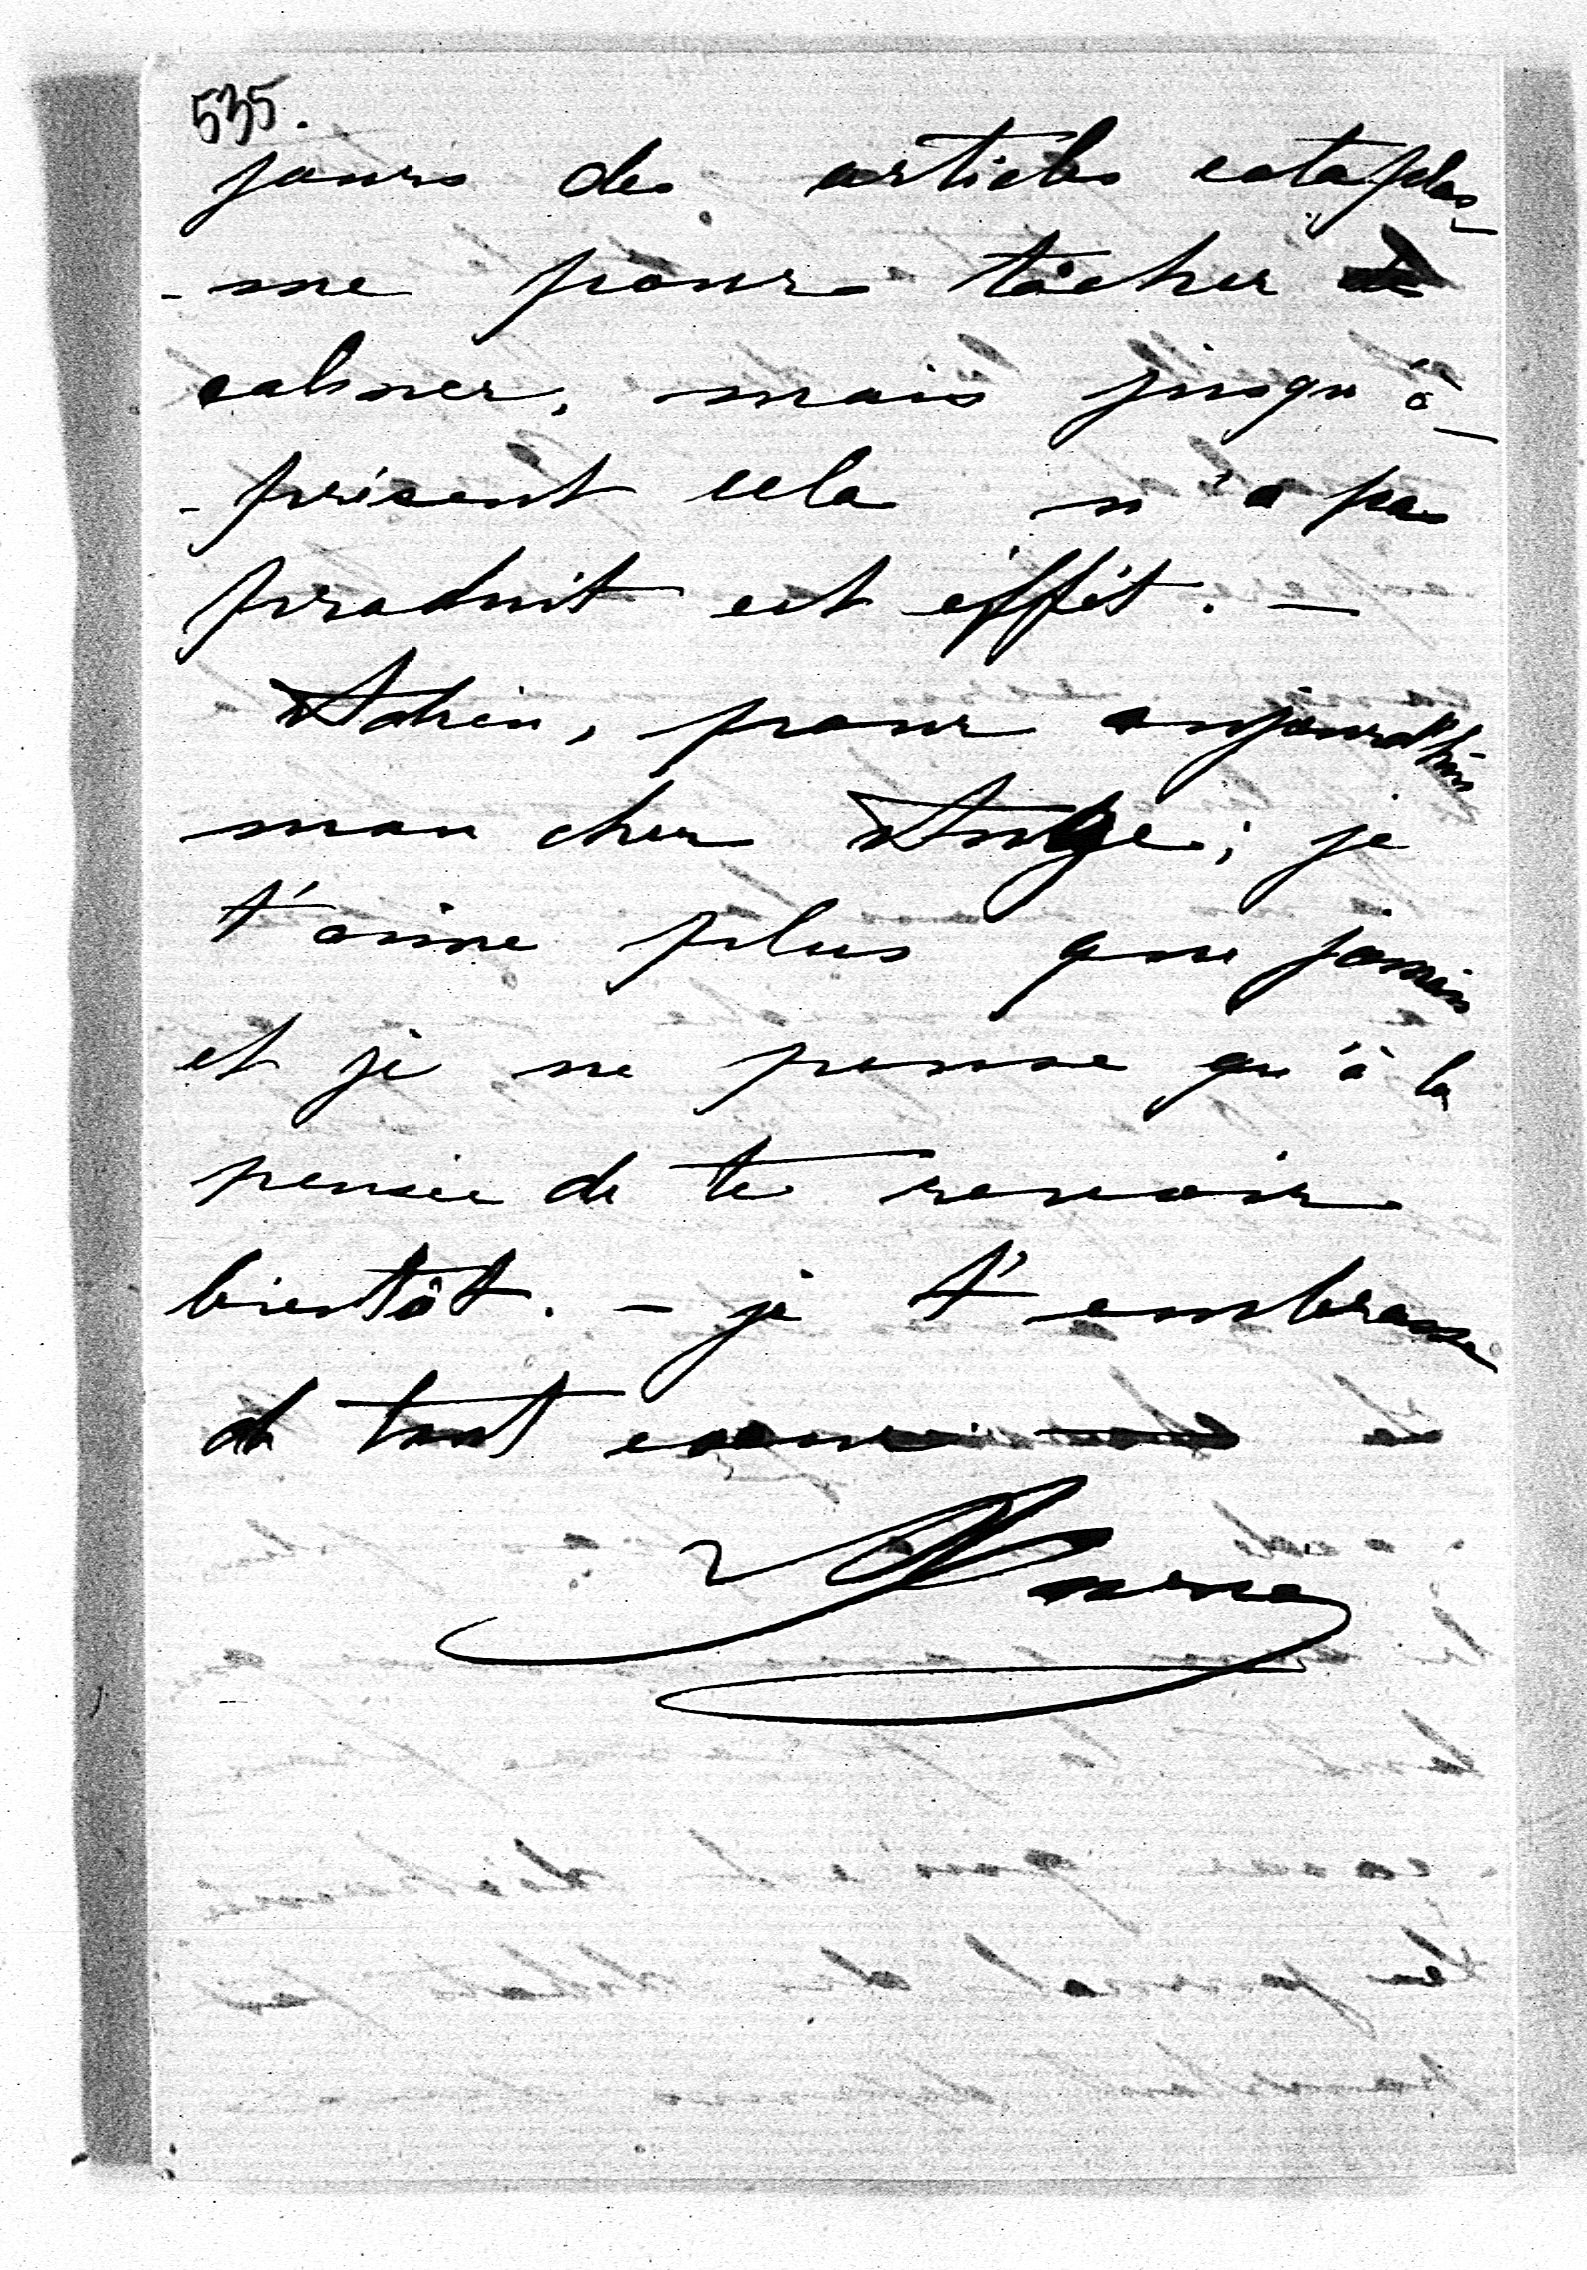 535.
jours des articles cataplas-
-me pour tâcher de
calmer, mais jusqu'à-
-présent cela n'a pas
produit cet éffèt. —
Adieu, pour aujourd'hui
mon cher Ange; je
t'aime plus que jamais
et je ne pense qu'à la
pensée de te revoir
bientôt. — je t'embrasse
de tout coeur
Anna